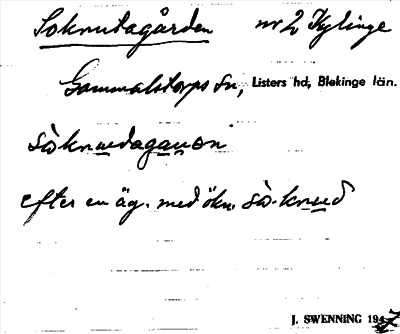 Soknutagården nr 2 Kylinge
Gammalstorps sn, Listers hd, Blekinge län.
såknudagauon
efter en äg. med ökn. så-knud
J. SWENNING 1947